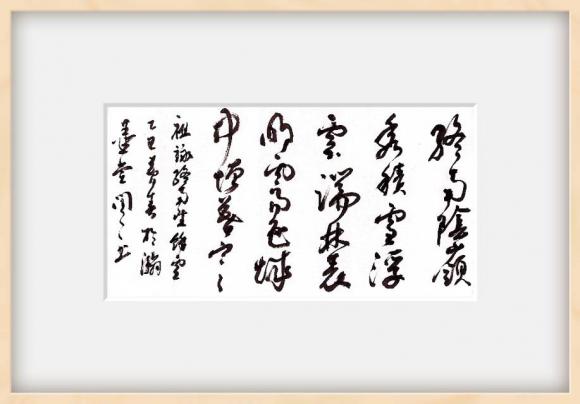 終南陰嶺
秀積雪浮
雲端林表
明霽色城
中增暮寒
祖詠終南望餘雪
乙巳春於瀚
墨堂書